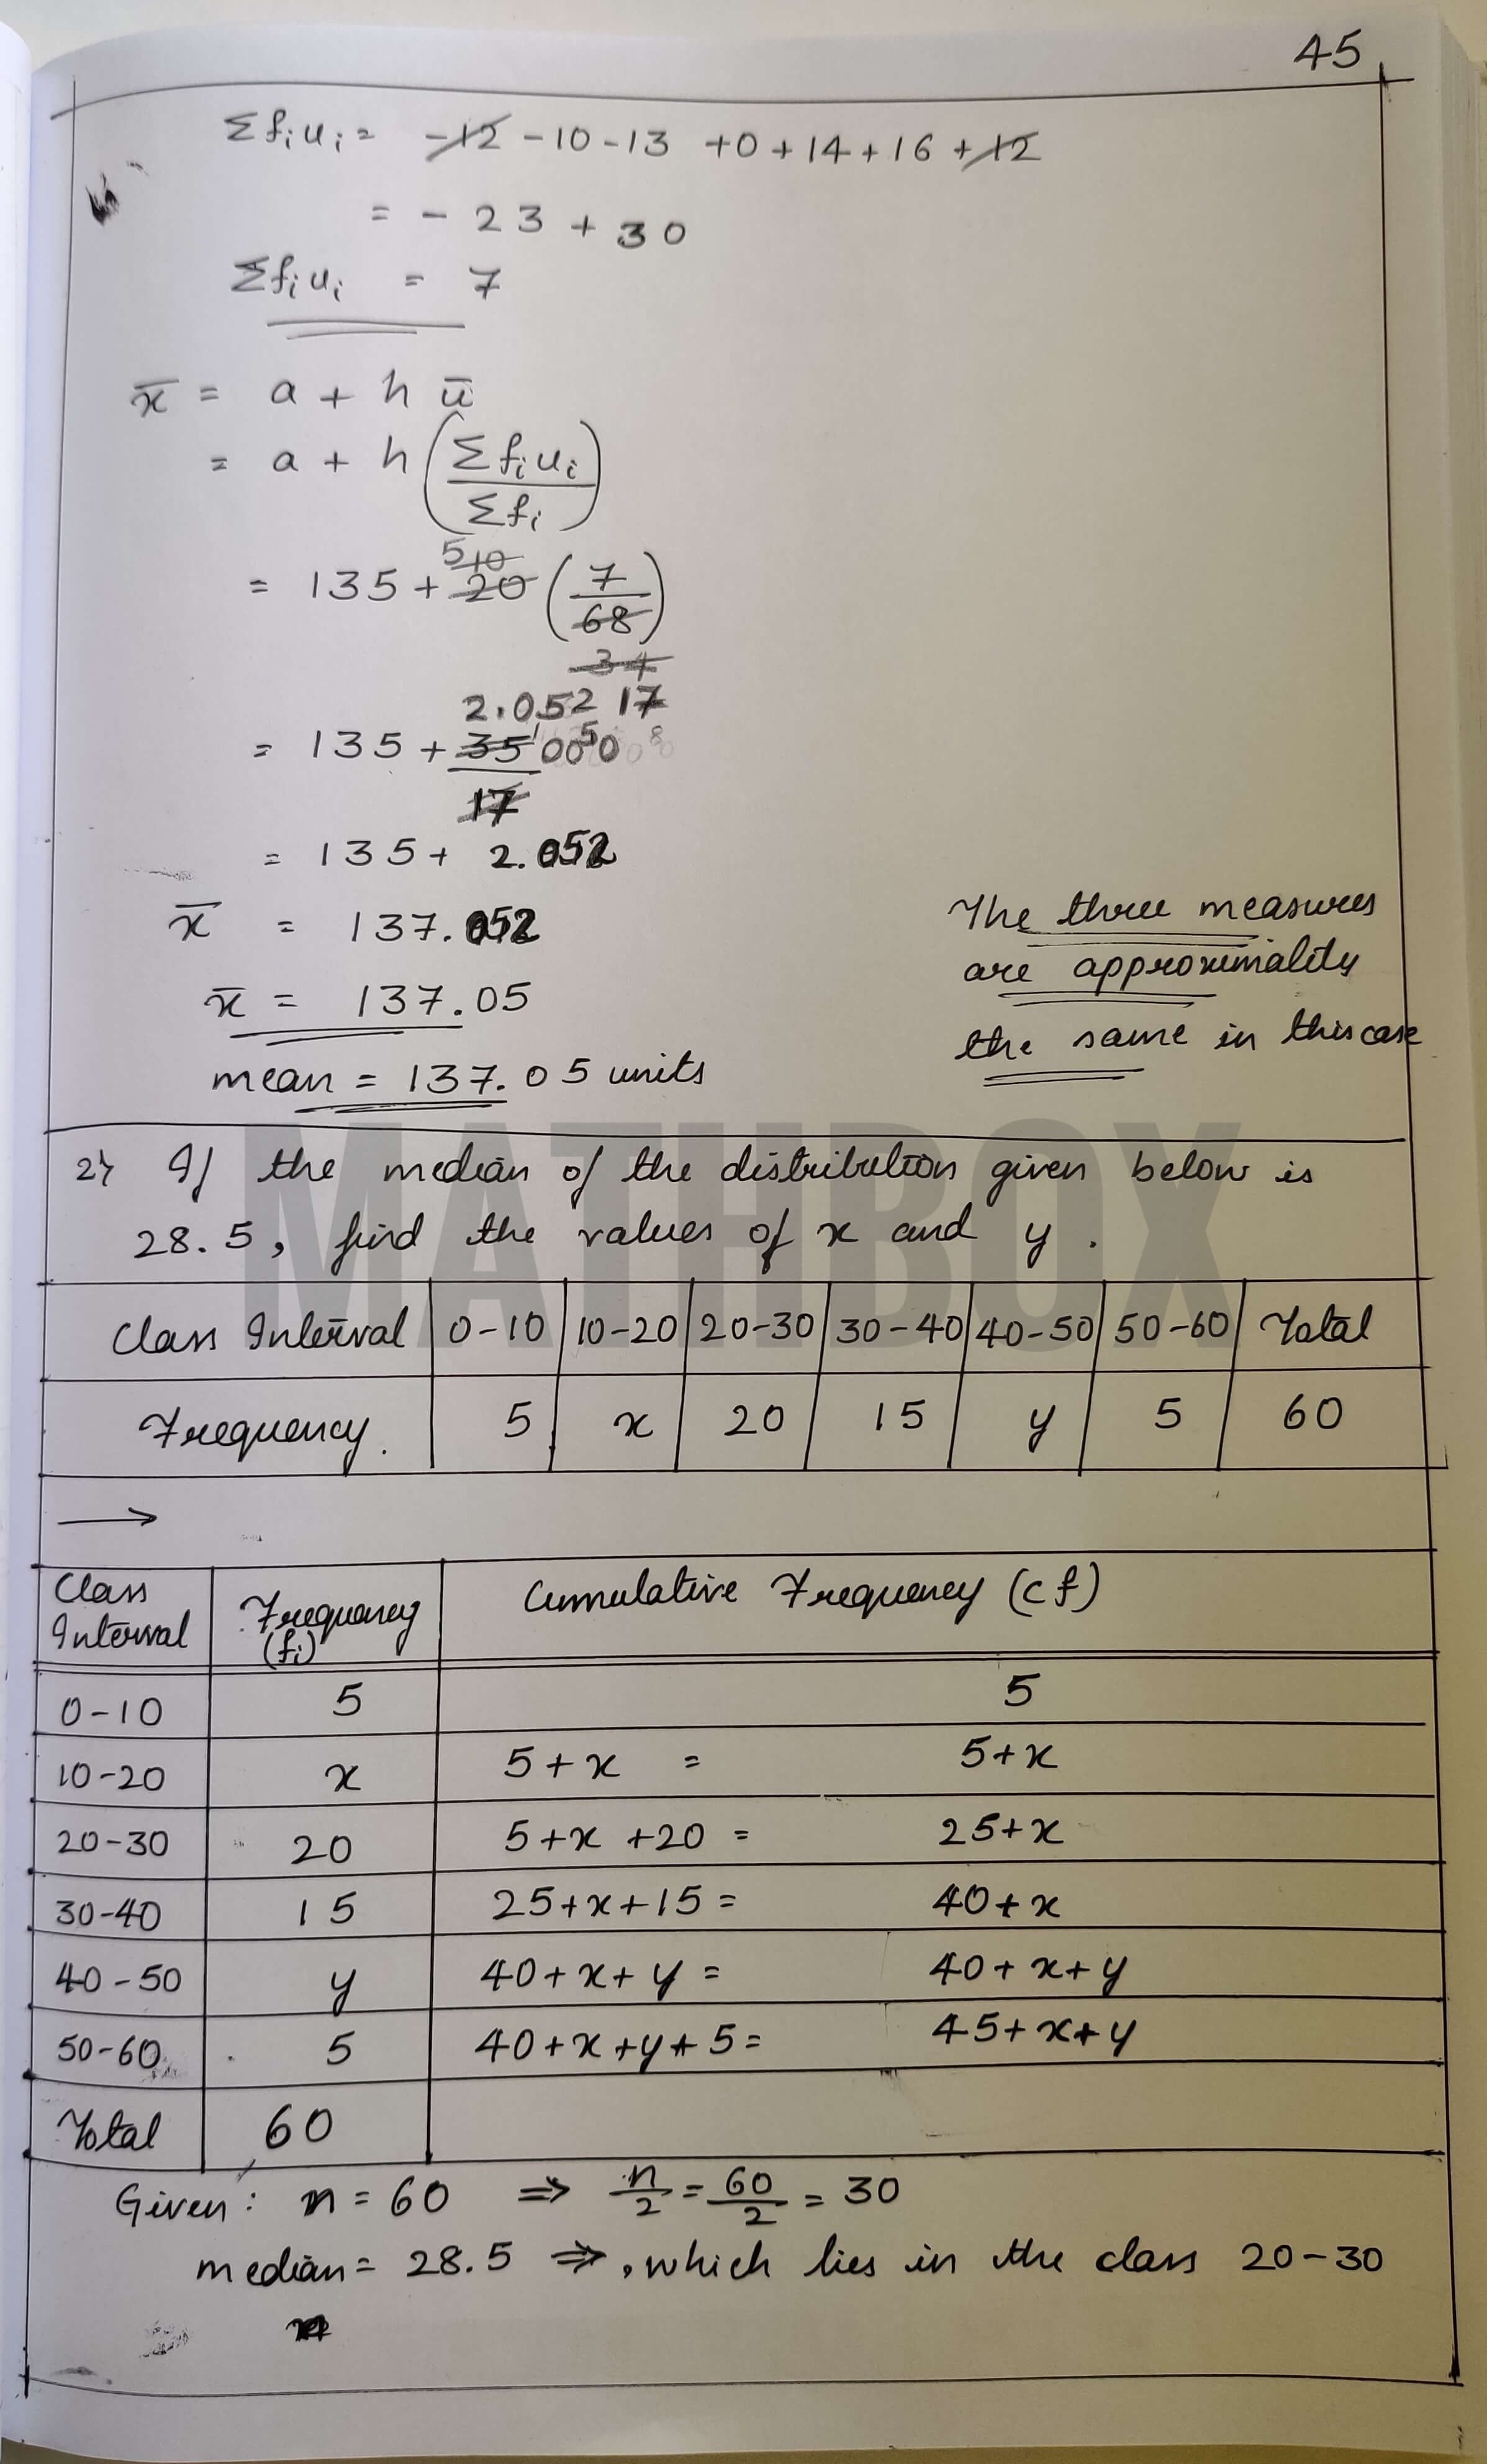 45
Σfᵢuᵢ = -12 -10 -13 +0 +14 +16 +12
= -23 + 30
Σfᵢuᵢ = 7
x̄ = a + h ū
= a + h (Σfᵢuᵢ / Σfᵢ)
5 10
= 135 + 20 (7/68)
34
2.052 17
= 135 + 35/17
= 135 + 2.052
x̄ = 137.052
x̄ = 137.05
mean = 137.05 units
The three measures
are approximality
the same in this case
2) If the median of the distribution given below is
28.5, find the values of x and y.
Class Interval 0-10 10-20 20-30 30-40 40-50 50-60 Total
Frequency. 5 x 20 15 y 5 60
→
Class Interval Frequency (fi) Cumulative Frequency (cf)
0-10 5 5
10-20 x 5+x = 5+x
20-30 20 5+x+20 = 25+x
30-40 15 25+x+15 = 40+x
40-50 y 40+x+y = 40+x+y
50-60 5 40+x+y+5 = 45+x+y
Total 60
Given: n = 60 ⇒ n/2 = 60/2 = 30
median = 28.5 ⇒, which lies in the class 20-30
MATHBOX